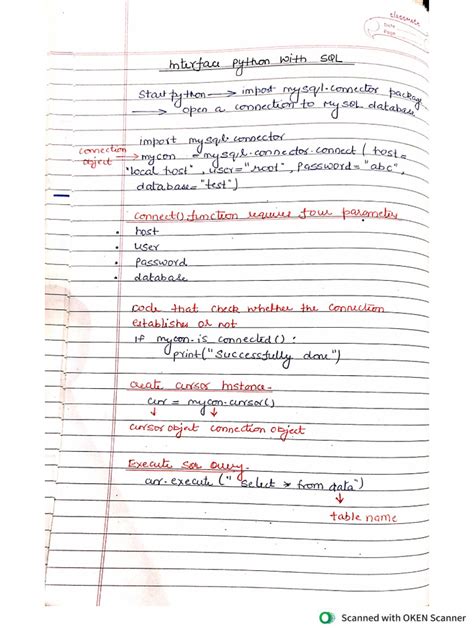 classmate
Date
Page
Interface python with SQL
Start python → import mysql.connector package
→ open a connection to MySQL database
import mysql.connector
connection object → mycon = mysql.connector.connect ( host=
"local host", user= "root", Password = "abc",
database= "test")
connect() function requires four parameters
• host
• user
• Password
• database
code that check whether the connection
establishes or not
if mycon.is connected() :
print("Successfully done")
create cursor Instance-
cur = mycon.cursor()
↓ ↓
cursor object connection object
Execute SQL Query.
cur.execute (" select * from data")
↓
table name
Scanned with OKEN Scanner